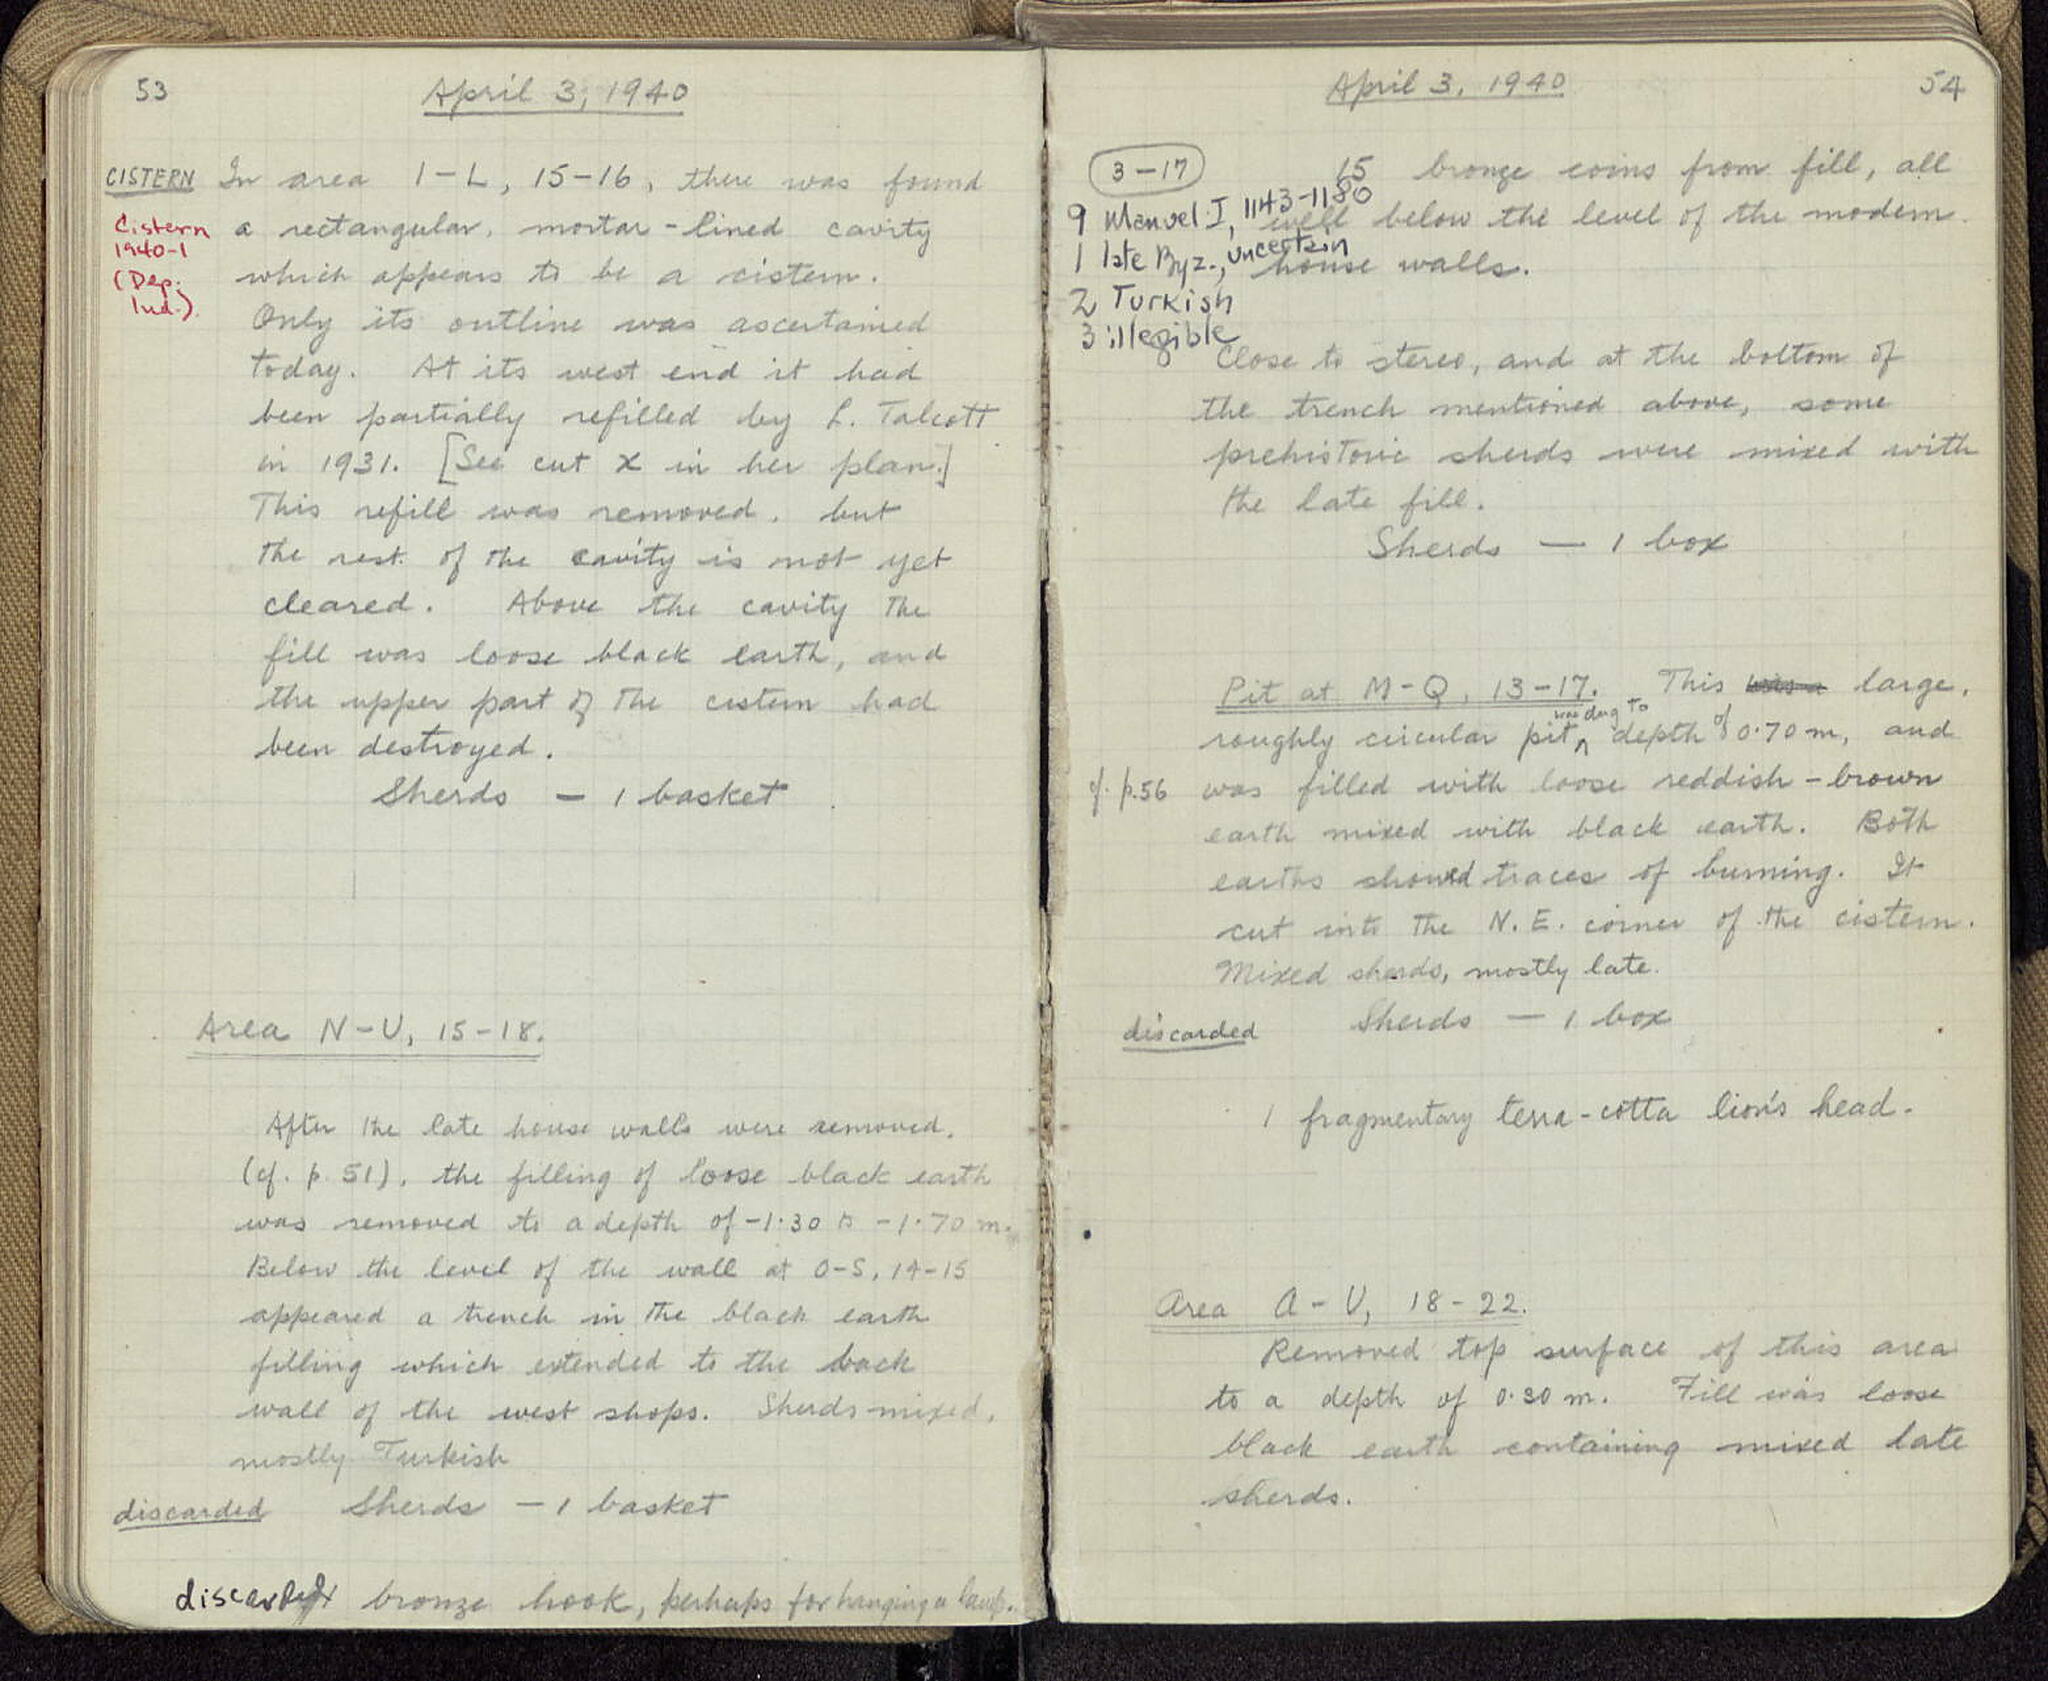 53
April 3, 1940
CISTERN
Cistern
1940-1
(Dep.
Ind.)
In area I-L, 15-16, there was found
a rectangular, mortar-lined cavity
which appears to be a cistern.
Only its outline was ascertained
today. At its west end it had
been partially refilled by L. Talcott
in 1931. [See cut X in her plan.]
This refill was removed, but
the rest of the cavity is not yet
cleared. Above the cavity the
fill was loose black earth, and
the upper part of the cistern had
been destroyed.
Sherds - 1 basket
Area N-U, 15-18.
After the late house walls were removed,
(cf. p. 51), the filling of loose black earth
was removed to a depth of -1.30 to -1.70 m.
Below the level of the wall at O-S, 14-15
appeared a trench in the black earth
filling which extended to the back
wall of the west shops. Sherds mixed,
mostly Turkish
discarded Sherds - 1 basket
discarded bronze hook, perhaps for hanging a lamp.
April 3, 1940
54
3-17
9 Manuel I, 1143-1180
1 late Byz., uncertain
2 Turkish
3 illegible
15 bronze coins from fill, all
well below the level of the modern
house walls.
Close to stereo, and at the bottom of
the trench mentioned above, some
prehistoric sherds were mixed with
the late fill.
Sherds - 1 box
Pit at M-Q, 13-17. This was a large,
roughly circular pit was dug to depth of 0.70 m, and
cf. p. 56 was filled with loose reddish-brown
earth mixed with black earth. Both
earths showed traces of burning. It
cut into the N.E. corner of the cistern.
Mixed sherds, mostly late.
discarded Sherds - 1 box
1 fragmentary terra-cotta lion's head.
Area A-U, 18-22.
Removed top surface of this area
to a depth of 0.30 m. Fill was loose
black earth containing mixed late
sherds.